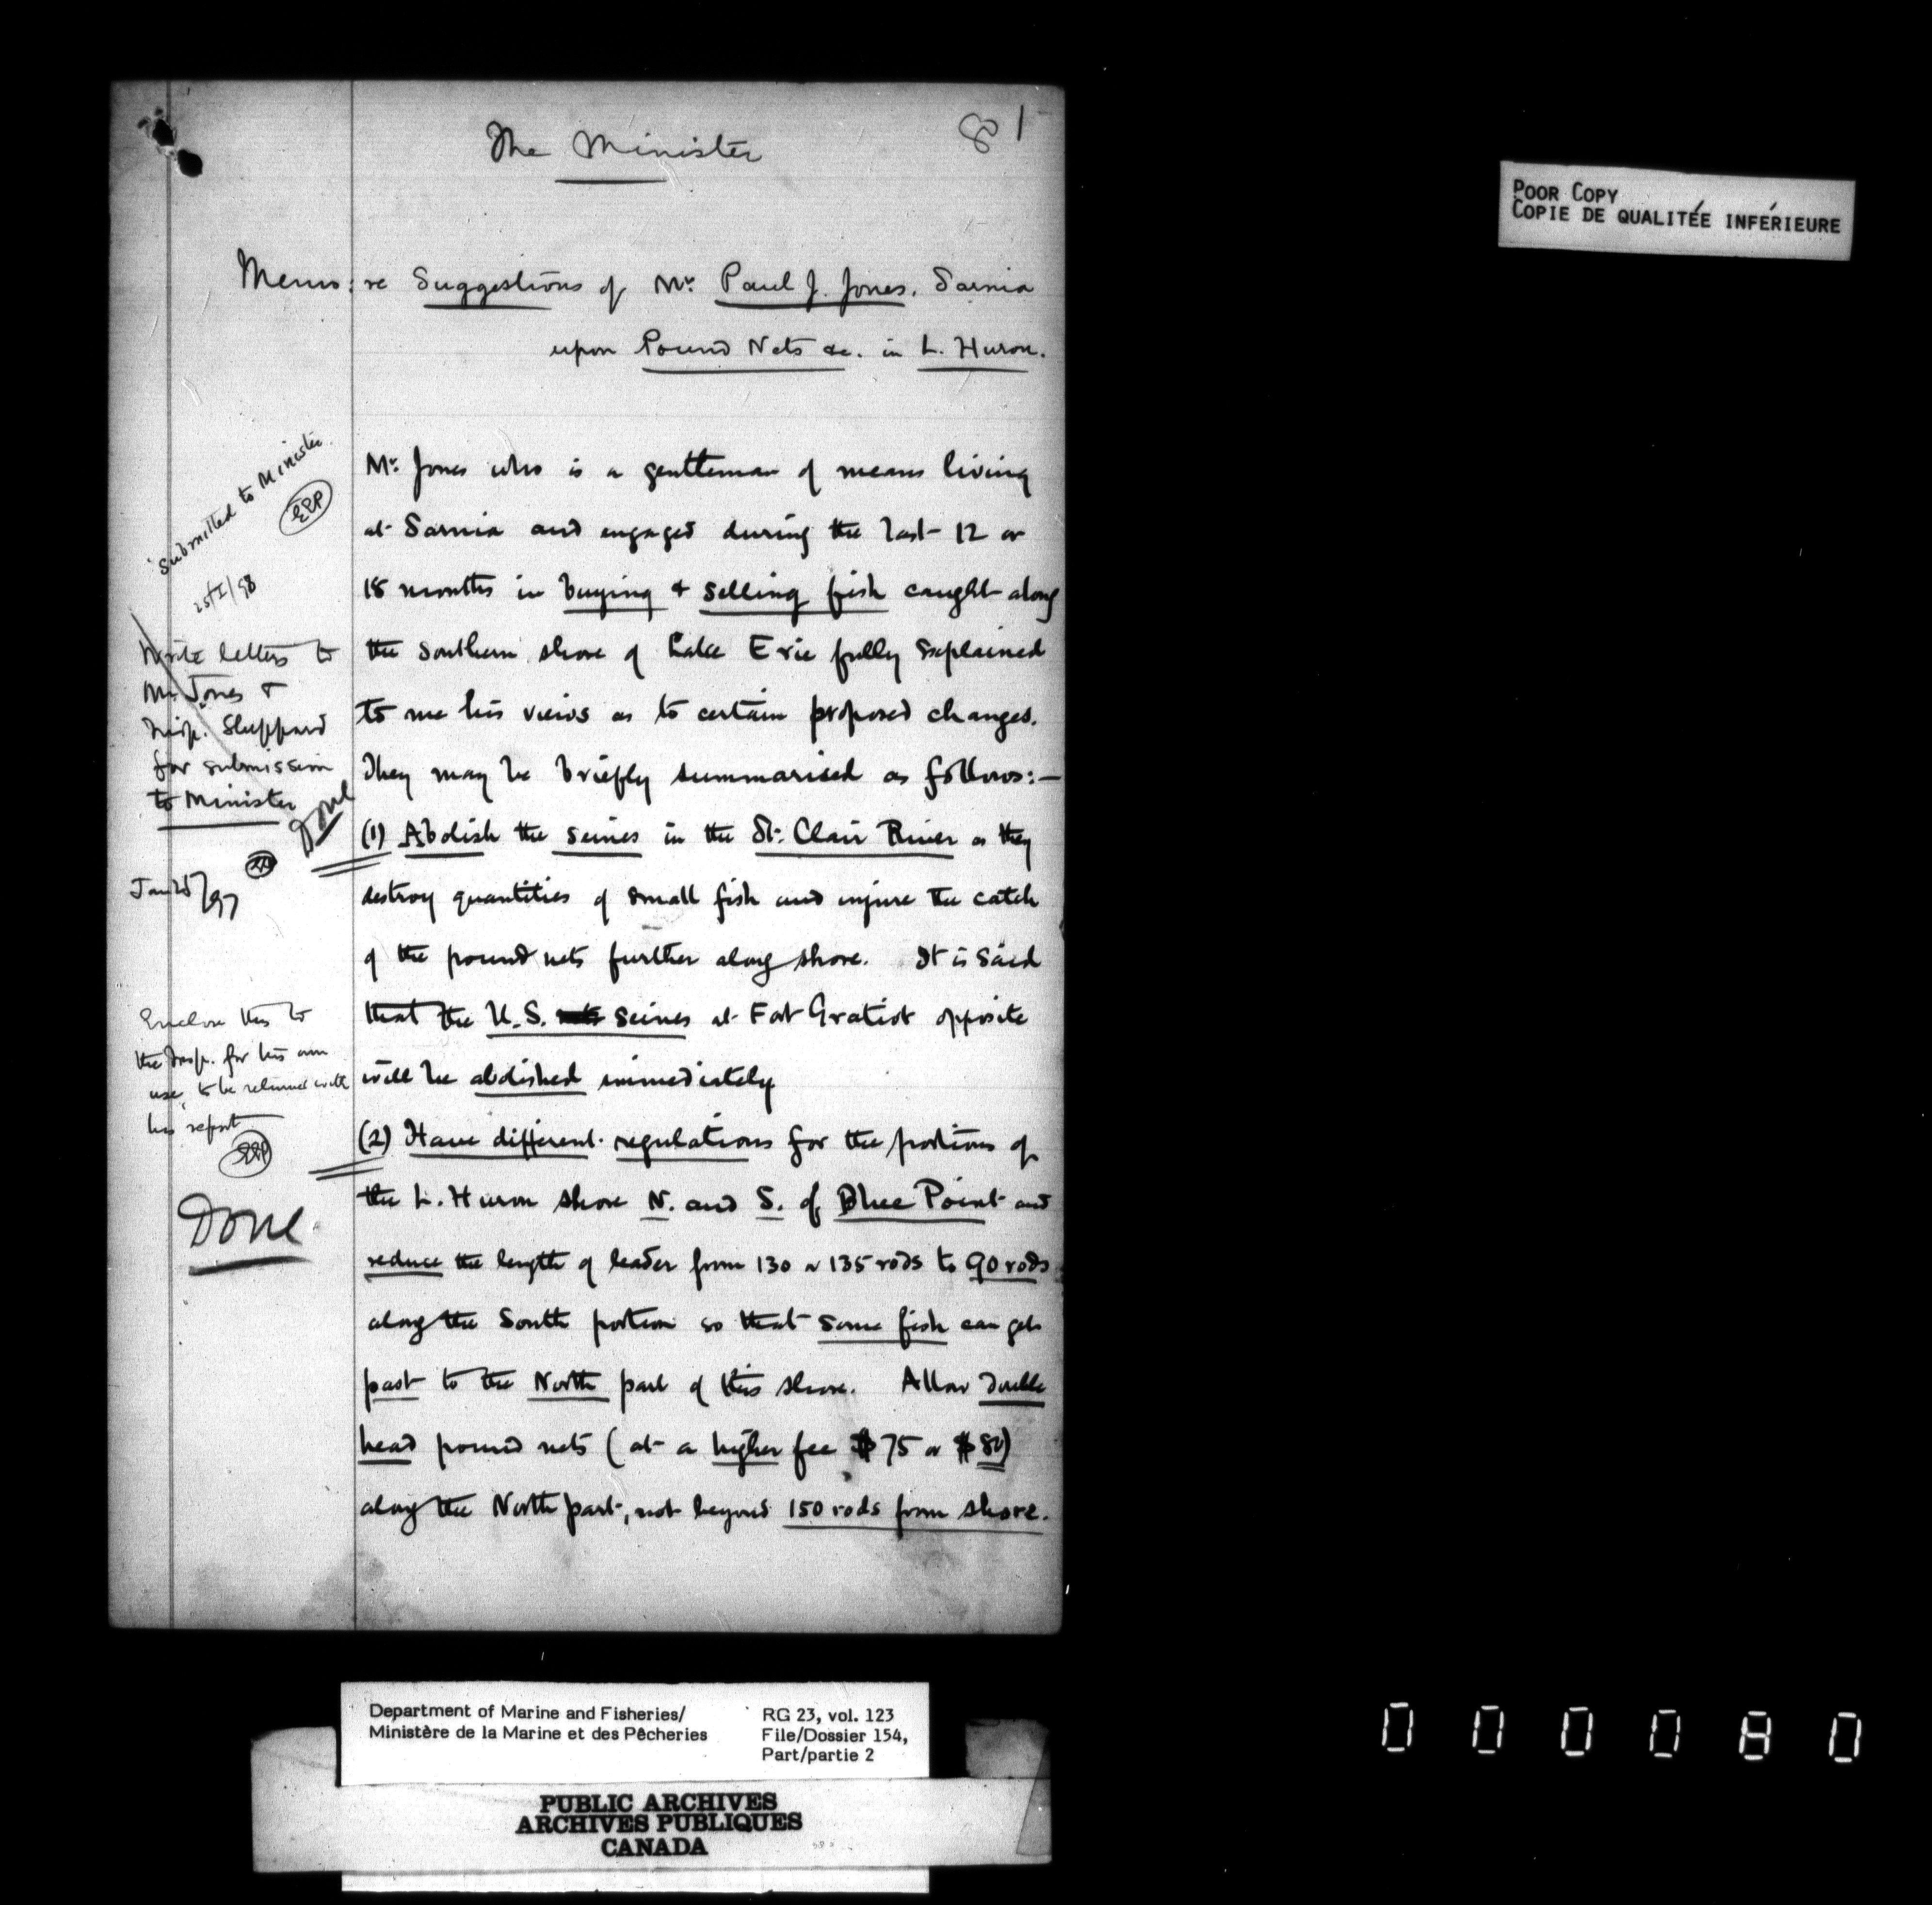 81
The Minister
POOR COPY
COPIE DE QUALITÉE INFÉRIEURE
Memo: re Suggestions of Mr. Paul J. Jones, Sarnia
upon Pound Nets &c. in L. Huron.
Submitted to Minister
EEP
25/I/98
Write letters to
Mr. Jones &
Insp. Sheppard
for submission
to Minister
Done
Jan 25/97
Enclose this to
the Insp. for his own
use, to be returned with
his report
EEP
Done
Mr. Jones who is a gentleman of means living
at Sarnia and engaged during the last 12 or
18 months in buying & selling fish caught along
the southern shore of Lake Erie fully explained
to me his views as to certain proposed changes.
They may be briefly summarised as follows:—
(1) Abolish the seines in the St. Clair River as they
destroy quantities of small fish and injure the catch
of the pound nets further along shore. It is said
that the U.S. nets seines at Fort Gratiot opposite
will be abolished immediately
(2) Have different regulations for the portions of
the L. Huron shore N. and S. of Blue Point and
reduce the length of leader from 130 or 135 rods to 90 rods
along the South portion so that some fish can get
past to the North part of this shore. Allow double
head pound nets (at a higher fee $75 or $80)
along the North part, not beyond 150 rods from shore.
Department of Marine and Fisheries/
Ministère de la Marine et des Pêcheries
RG 23, vol. 123
File/Dossier 154,
Part/partie 2
PUBLIC ARCHIVES
ARCHIVES PUBLIQUES
CANADA
000080